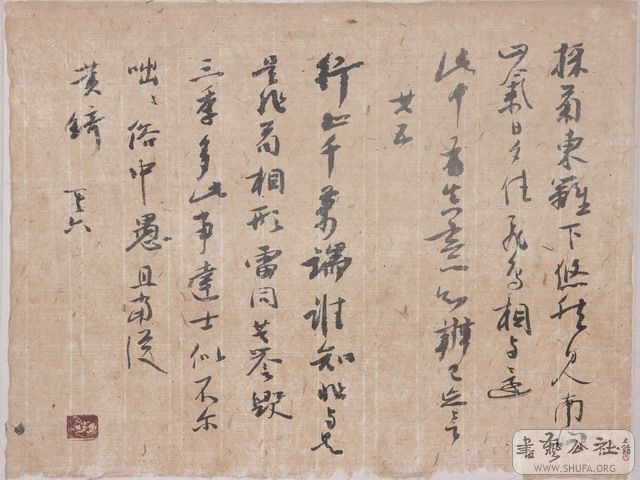 採菊東籬下悠然見南山
山氣日夕佳飛鳥相与還
此中有真意欲辨已忘言
其五
行止千萬端誰知非与是
是非苟相形雷同共譽毀
三季多此事達士似不尔
咄〻俗中愚且當從
黄綺 其六
書藝公社
WWW.SHUFA.ORG